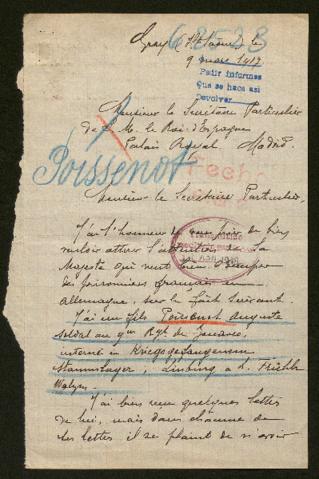 Gray Hte Saone, le
6 2523
9 mars 1917
Pedir informes
Que se haga así
Devolver
Monsieur le Secrétaire Particulier
de S. M. le Roi d'Espagne
Palais Royal Madrid.
Poissenot
Fecho
Monsieur le Secrétaire Particulier,
J'ai l'honneur de vous prier de bien
vouloir attirer l'attention de Sa
Majesté qui veut bien s'occuper
des prisonniers français en
Allemagne, sur le fait suivant.
J'ai un fils Poissenot Auguste
soldat au 9e Rgt de Zouaves,
interné en Kriegsgefangenen
Stammlager, Limburg a L.
J'ai bien reçu quelques lettres
de lui, mais dans chacune de
ses lettres il se plaint de n'avoir